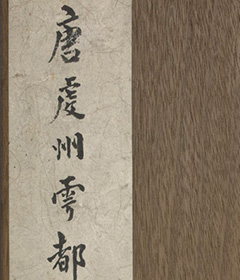 唐虔州雩都